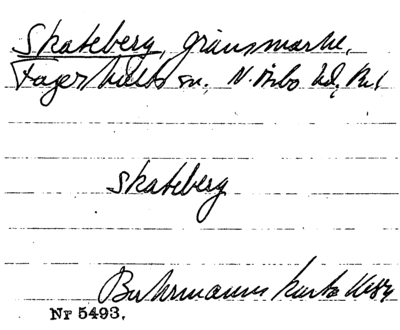 Skateberg, gränsmärke,
Fagerhults sn, N. Åsbo hd,
Skateberg
Buhrmanns karta
Nr 5493.